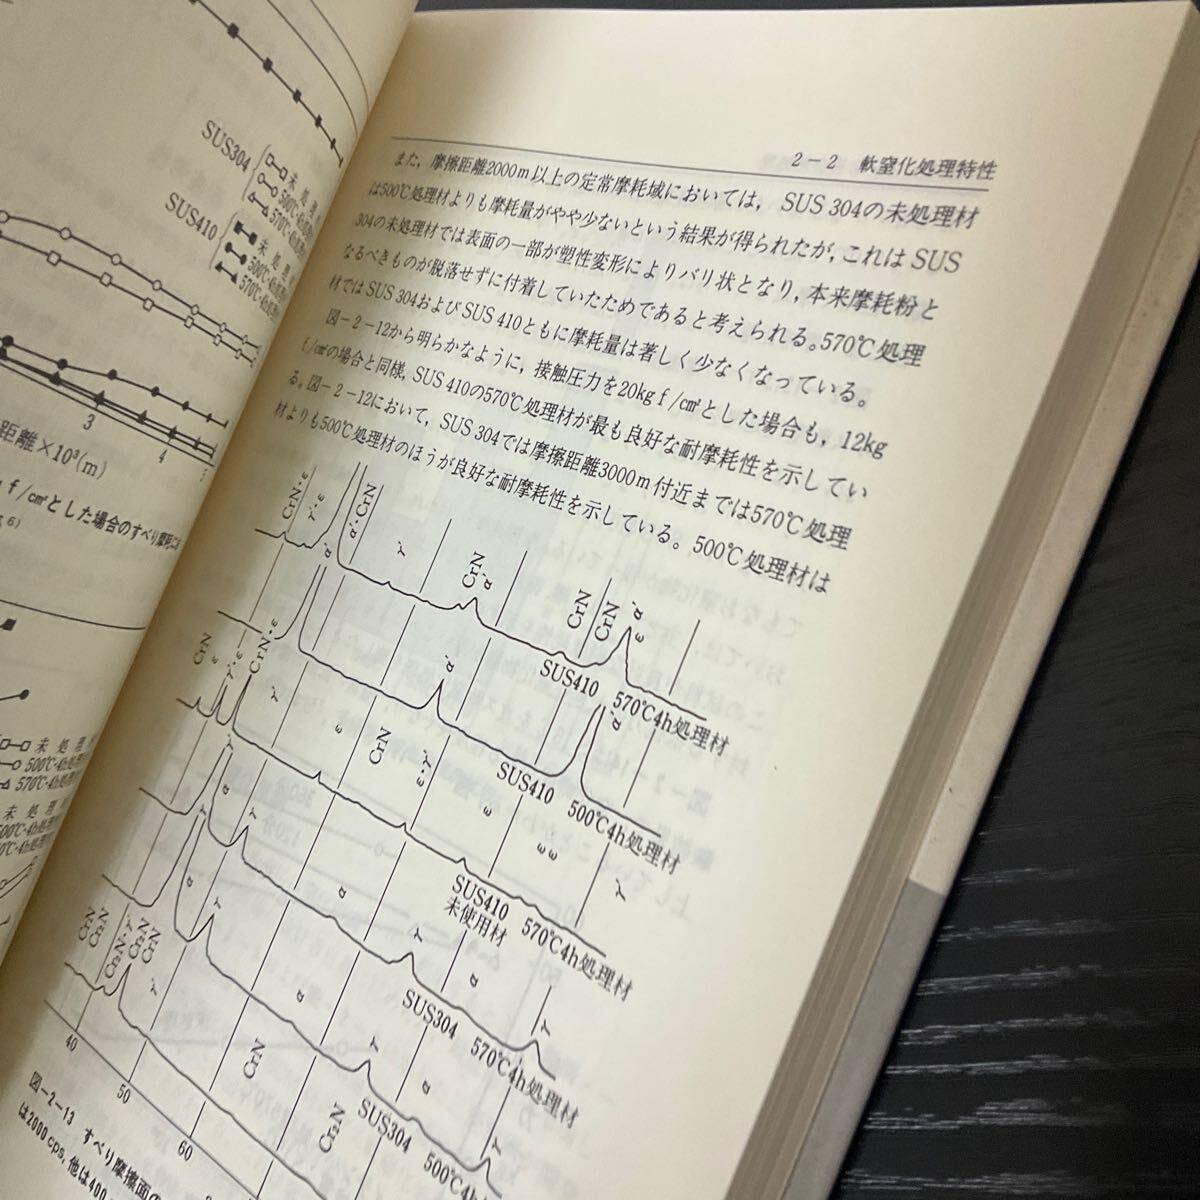 SUS304
未処理
500℃・4h処理
570℃・4h処理
SUS410
未処理
500℃・4h処理
570℃・4h処理
3
4
距離×10³(m)
f/c㎡とした場合のすべり摩耗
6)
未処理
500℃・4h処理
570℃・4h処理
未処理
2-2 軟窒化処理特性
また，摩擦距離2000m以上の定常摩耗域においては，SUS 304の未処理材
は500℃処理材よりも摩耗量がやや少ないという結果が得られたが，これはSUS
304の未処理材では表面の一部が塑性変形によりバリ状となり，本来摩耗粉と
なるべきものが脱落せずに付着していたためであると考えられる。570℃処理
材ではSUS 304およびSUS 410ともに摩耗量は著しく少なくなっている。
図-2-12から明らかなように，接触圧力を20kg f/c㎡とした場合も，12kg
f/c㎡の場合と同様，SUS 410の570℃処理材が最も良好な耐摩耗性を示してい
る。図-2-12において，SUS 304では摩擦距離3000m付近までは570℃処理
材よりも500℃処理材のほうが良好な耐摩耗性を示している。500℃処理材は
CrN・ε
γ'・ε
α'
α'・CrN
γ'
CrN
α'
CrN
CrN
ε
α'
SUS410 570℃4h処理材
CrN
ε
γ'・ε
CrN・ε
γ'
ε
α'
CrN
ε・γ'
ε
α'
SUS410 500℃4h処理材
ε ε
γ'
SUS410 570℃4h処理材
未使用材
γ
α
γ
α
γ
α
γ
SUS304 570℃4h処理材
α
γ
α
γ
α
γ
SUS304 500℃4h処理材
CrN
CrN
CrN
γ'
CrN
CrN
40
50
60
図-2-13 すべり摩擦面の
は2000 cps，他は400